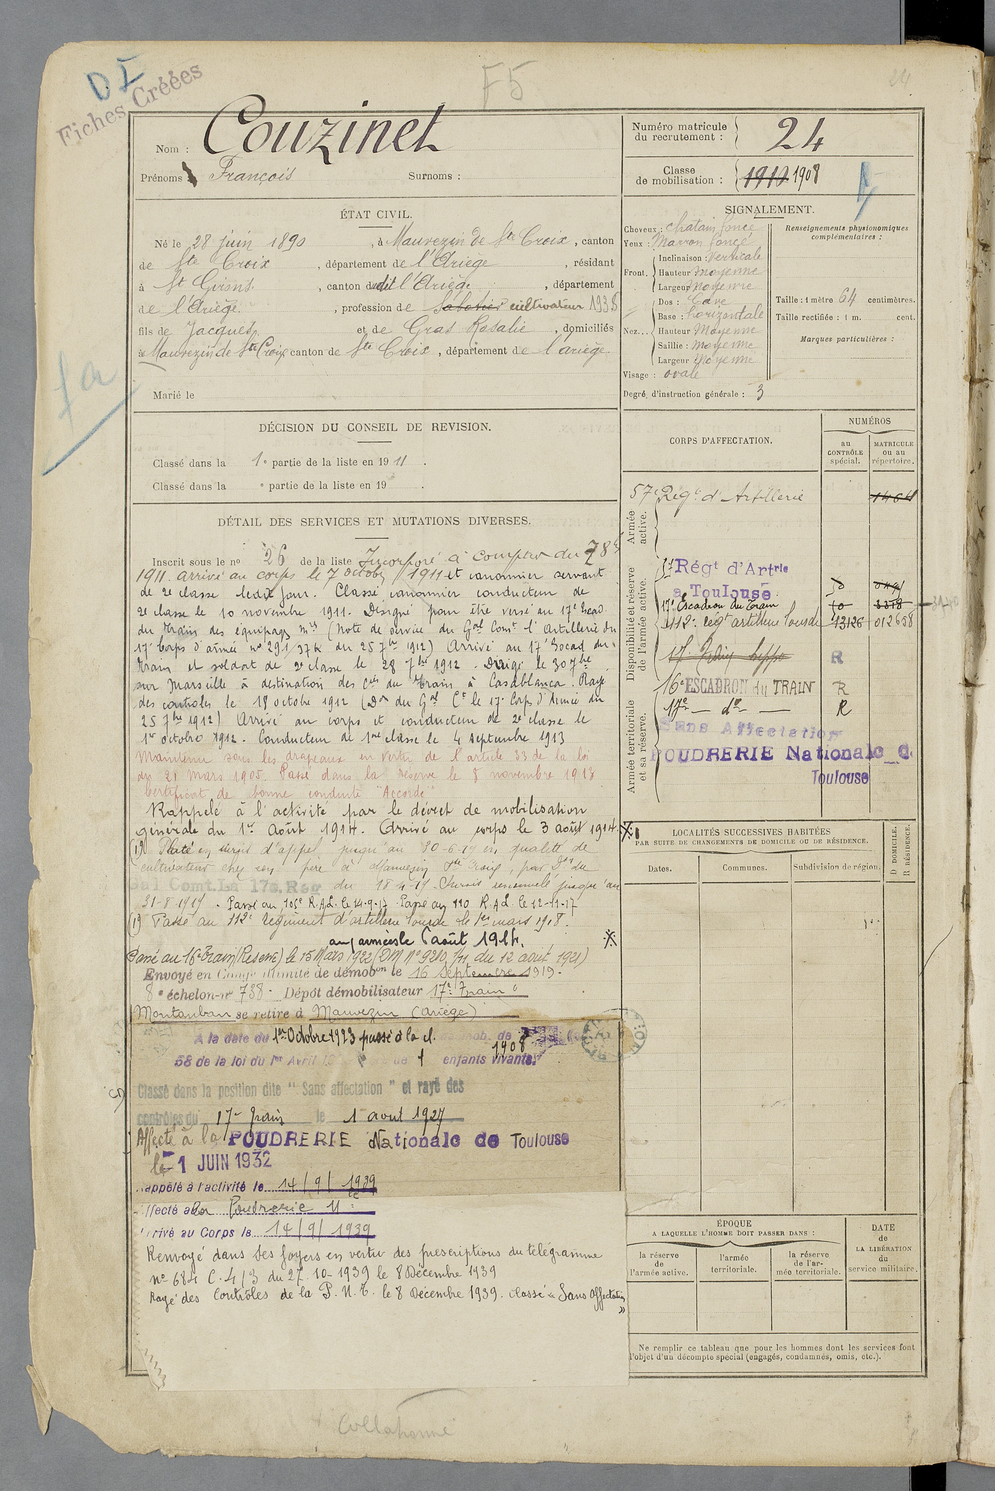 DI
Fiches Créées
F5
24
Nom : Couzinet
Prénoms : François Surnoms :
Numéro matricule du recrutement : 24
Classe de mobilisation : 1910 1908
ÉTAT CIVIL.
Né le 28 juin 1890, à Mauvezin de Ste Croix, canton
de Ste Croix, département de l'Ariège, résidant
à St Girons, canton dudit l'Ariège, département
de l'Ariège, profession de Sabotier cultivateur 1938
fils de Jacques et de Gras Rosalie, domiciliés
à Mauvezin de Ste Croix canton de Ste Croix, département de l'ariège
Marié le
SIGNALEMENT.
Cheveux : chatain foncé
Yeux : Marron foncé
Front. Inclinaison : Verticale
Hauteur moyenne
Largeur moyenne
Nez... Dos : Cave
Base : horizontale
Hauteur Moyenne
Saillie : moyenne
Largeur Moyenne
Visage : ovale
Renseignements physionomiques complémentaires :
Taille : 1 mètre 64 centimètres.
Taille rectifiée : 1 m. cent.
Marques particulières :
Degré d'instruction générale : 3
DÉCISION DU CONSEIL DE REVISION.
Classé dans la 1e partie de la liste en 1911.
Classé dans la e partie de la liste en 19 .
CORPS D'AFFECTATION.
NUMÉROS
au CONTRÔLE spécial.
MATRICULE ou au répertoire.
Armée active.
57e Régt d'Artillerie
Disponibilité et réserve de l'armée active.
Régt d'Artrie
à Toulouse
17e Escadron du Train
112e régt artillerie lourde 13126 012658
R
Armée territoriale et sa réserve.
16e ESCADRON du TRAIN R
17e — de — R
Sans Affectation
POUDRERIE Nationale de
Toulouse
DÉTAIL DES SERVICES ET MUTATIONS DIVERSES.
Inscrit sous le no 26 de la liste Incorporé à compter du 7 8bre
1911. arrivé au corps le 7 octobre 1911 et canonnier servant
de 2e classe ledit jour. Classé canonnier conducteur de
2e classe le 10 novembre 1911. Désigné pour être versé au 17e Escad.
du Train des équipages mres (Note de service du Gal Comt l'Artillerie du
17e corps d'armée no 291/37K du 25 7bre 1912) Arrivé au 17e Escad du
Train et soldat de 2e classe le 28 7bre 1912. Dirigé le 30 7bre
sur Marseille à destination des Cies du Train à Casablanca. Rayé
des controles le 18 octobre 1912 (Don du Gal Ct le 17e Corps d'Armée du
25 7bre 1912) Arrivé au corps et conducteur de 2e classe le
1er octobre 1912. Conducteur de 1re classe le 4 septembre 1913
Maintenu sous les drapeaux en vertu de l'article 33 de la loi
du 21 Mars 1905. Passé dans la réserve le 8 novembre 1913
Certificat de bonne conduite "Accordé"
Rappelé à l'activité par le décret de mobilisation
générale du 1er Août 1914. Arrivé au corps le 3 août 1914.
(1) Placé en sursis d'appel jusqu'au 30-6-17 en qualité de
cultivateur chez son père à Mauvezin Ste Croix, par Don du
Gal Comt. La 17e Reg du 18-4-17. Sursis renouvelé jusqu'au
31-8-1917. Passé au 105e R.A.L. le 14-9-17 Passé au 110 R.A.L. le 12-11-17
(1) Passé au 112e régiment d'artillerie lourde le 1er mars 1918.
aux armées le 6 août 1914.
Passé au 16e Train (Réserve) le 15 Mars 1922 (DM no 9210 1/11 du 12 août 1921)
Envoyé en Congé illimité de démobon le 16 septembre 1919.
8e échelon - no 738 - Dépôt démobilisateur 17e Train
Montauban se retire à Mauvezin (Ariège)
A la date du 1er Octobre 1923 passé à la cl. de mob. de 1908
58 de la loi du 1er Avril enfants vivants.
Classé dans la position dite "Sans affectation" et rayé des
contrôles du 17e Train le 1er août 1927
Affecté à la POUDRERIE Nationale de Toulouse
le 1 JUIN 1932
Rappelé à l'activité le 14/9/1939
Affecté à la Poudrerie Nle
Arrivé au Corps le 14/9/1939
Renvoyé dans ses foyers en vertu des prescriptions du télégramme
no 684 C.4/3 du 27-10-1939 le 8 Décembre 1939
Rayé des Contrôles de la P.N.T. le 8 Décembre 1939. classé « Sans Affectation »
LOCALITÉS SUCCESSIVES HABITÉES
PAR SUITE DE CHANGEMENTS DE DOMICILE OU DE RÉSIDENCE.
Dates. Communes. Subdivision de région.
D. DOMICILE. R. RÉSIDENCE.
ÉPOQUE
A LAQUELLE L'HOMME DOIT PASSER DANS :
la réserve de l'armée active.
l'armée territoriale.
la réserve de l'armée territoriale.
DATE de LA LIBÉRATION du service militaire.
Ne remplir ce tableau que pour les hommes dont les services font
l'objet d'un décompte spécial (engagés, condamnés, omis, etc.).
Collationné